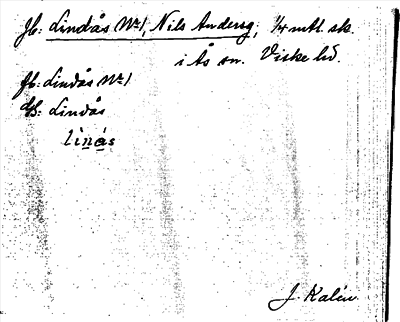 Jb: Lindås No 1, Nils Andersg, 1/4 mtl. sk.
i Ås sn. Viske hd.
Jb: Lindås No 1
Gs: Lindås
li̱ṉás
J. Kalén